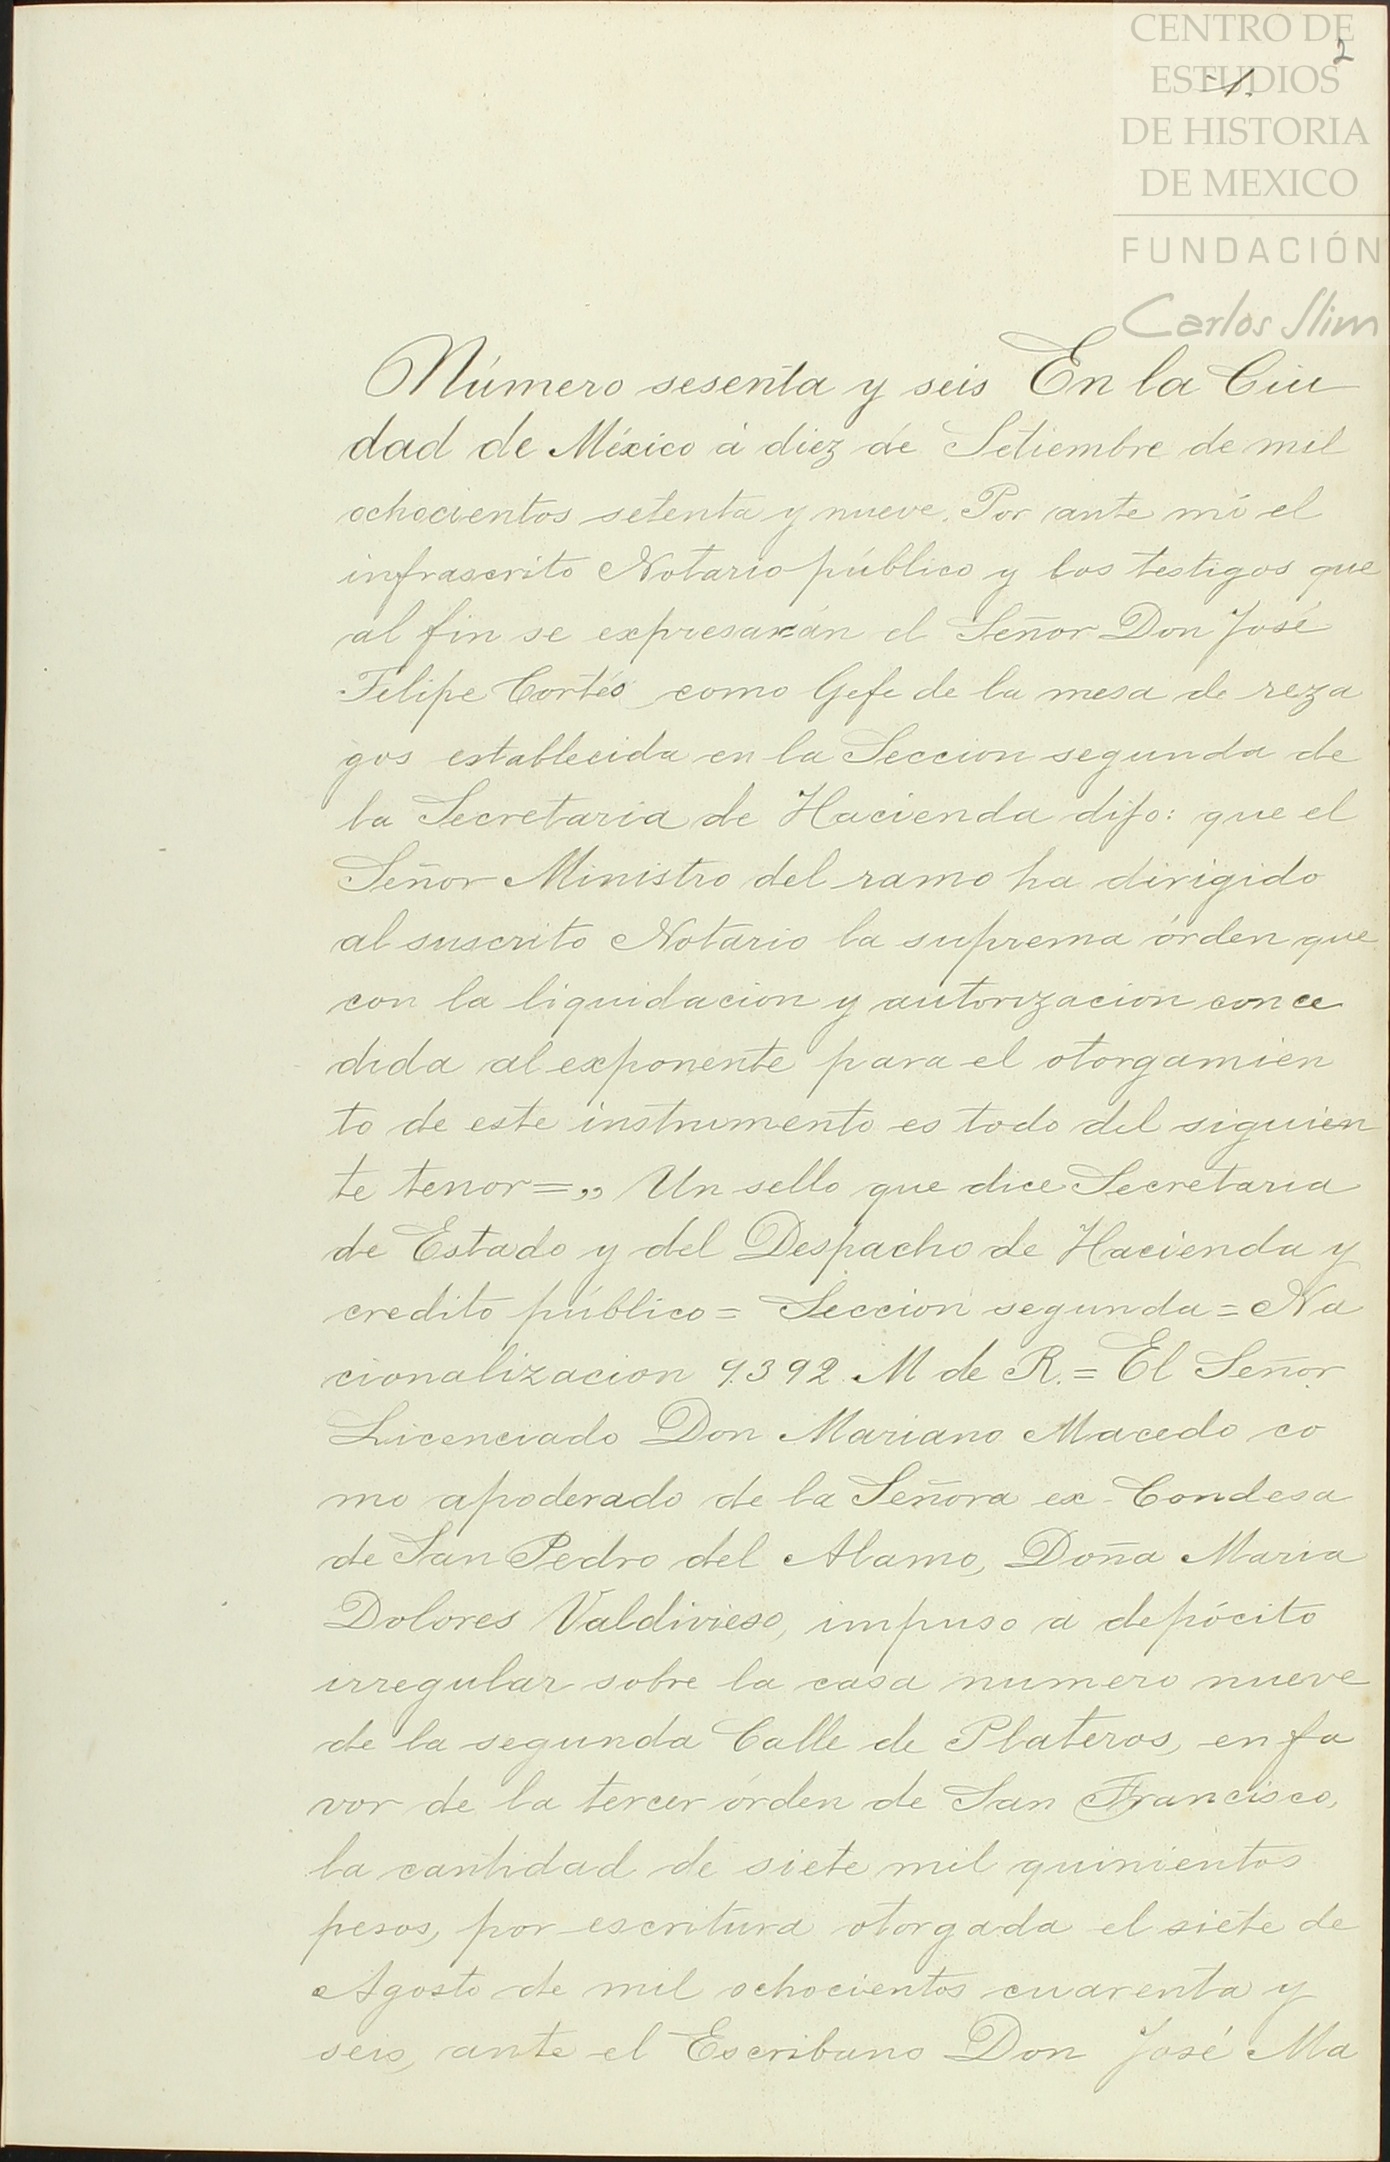 CENTRO DE
ESTUDIOS
DE HISTORIA
DE MEXICO
FUNDACIÓN
Carlos Slim
2
1.
Número sesenta y seis En la Ciu
dad de México á diez de Setiembre de mil
ochocientos setenta y nueve. Por ante mí el
infrascrito Notario público y los testigos que
al fin se expresarán el Señor Don José
Felipe Cortés como Gefe de la mesa de reza
gos establecida en la Seccion segunda de
la Secretaria de Hacienda dijo: que el
Señor Ministro del ramo ha dirigido
al suscrito Notario la suprema órden que
con la liquidacion y autorizacion conce
dida al exponente para el otorgamien
to de este instrumento es todo del siguien
te tenor=,, Un sello que dice Secretaria
de Estado y del Despacho de Hacienda y
credito público= Seccion segunda= Na
cionalizacion 9.392. M de R.= El Señor
Licenciado Don Mariano Macedo co
mo apoderado de la Señora ex-Condesa
de San Pedro del Alamo, Doña Maria
Dolores Valdivieso, impuso á depócito
irregular sobre la casa numero nueve
de la segunda Calle de Plateros, en fa
vor de la tercer órden de San Francisco,
la cantidad de siete mil quinientos
pesos, por escritura otorgada el siete de
Agosto de mil ochocientos cuarenta y
seis, ante el Escribano Don José Ma